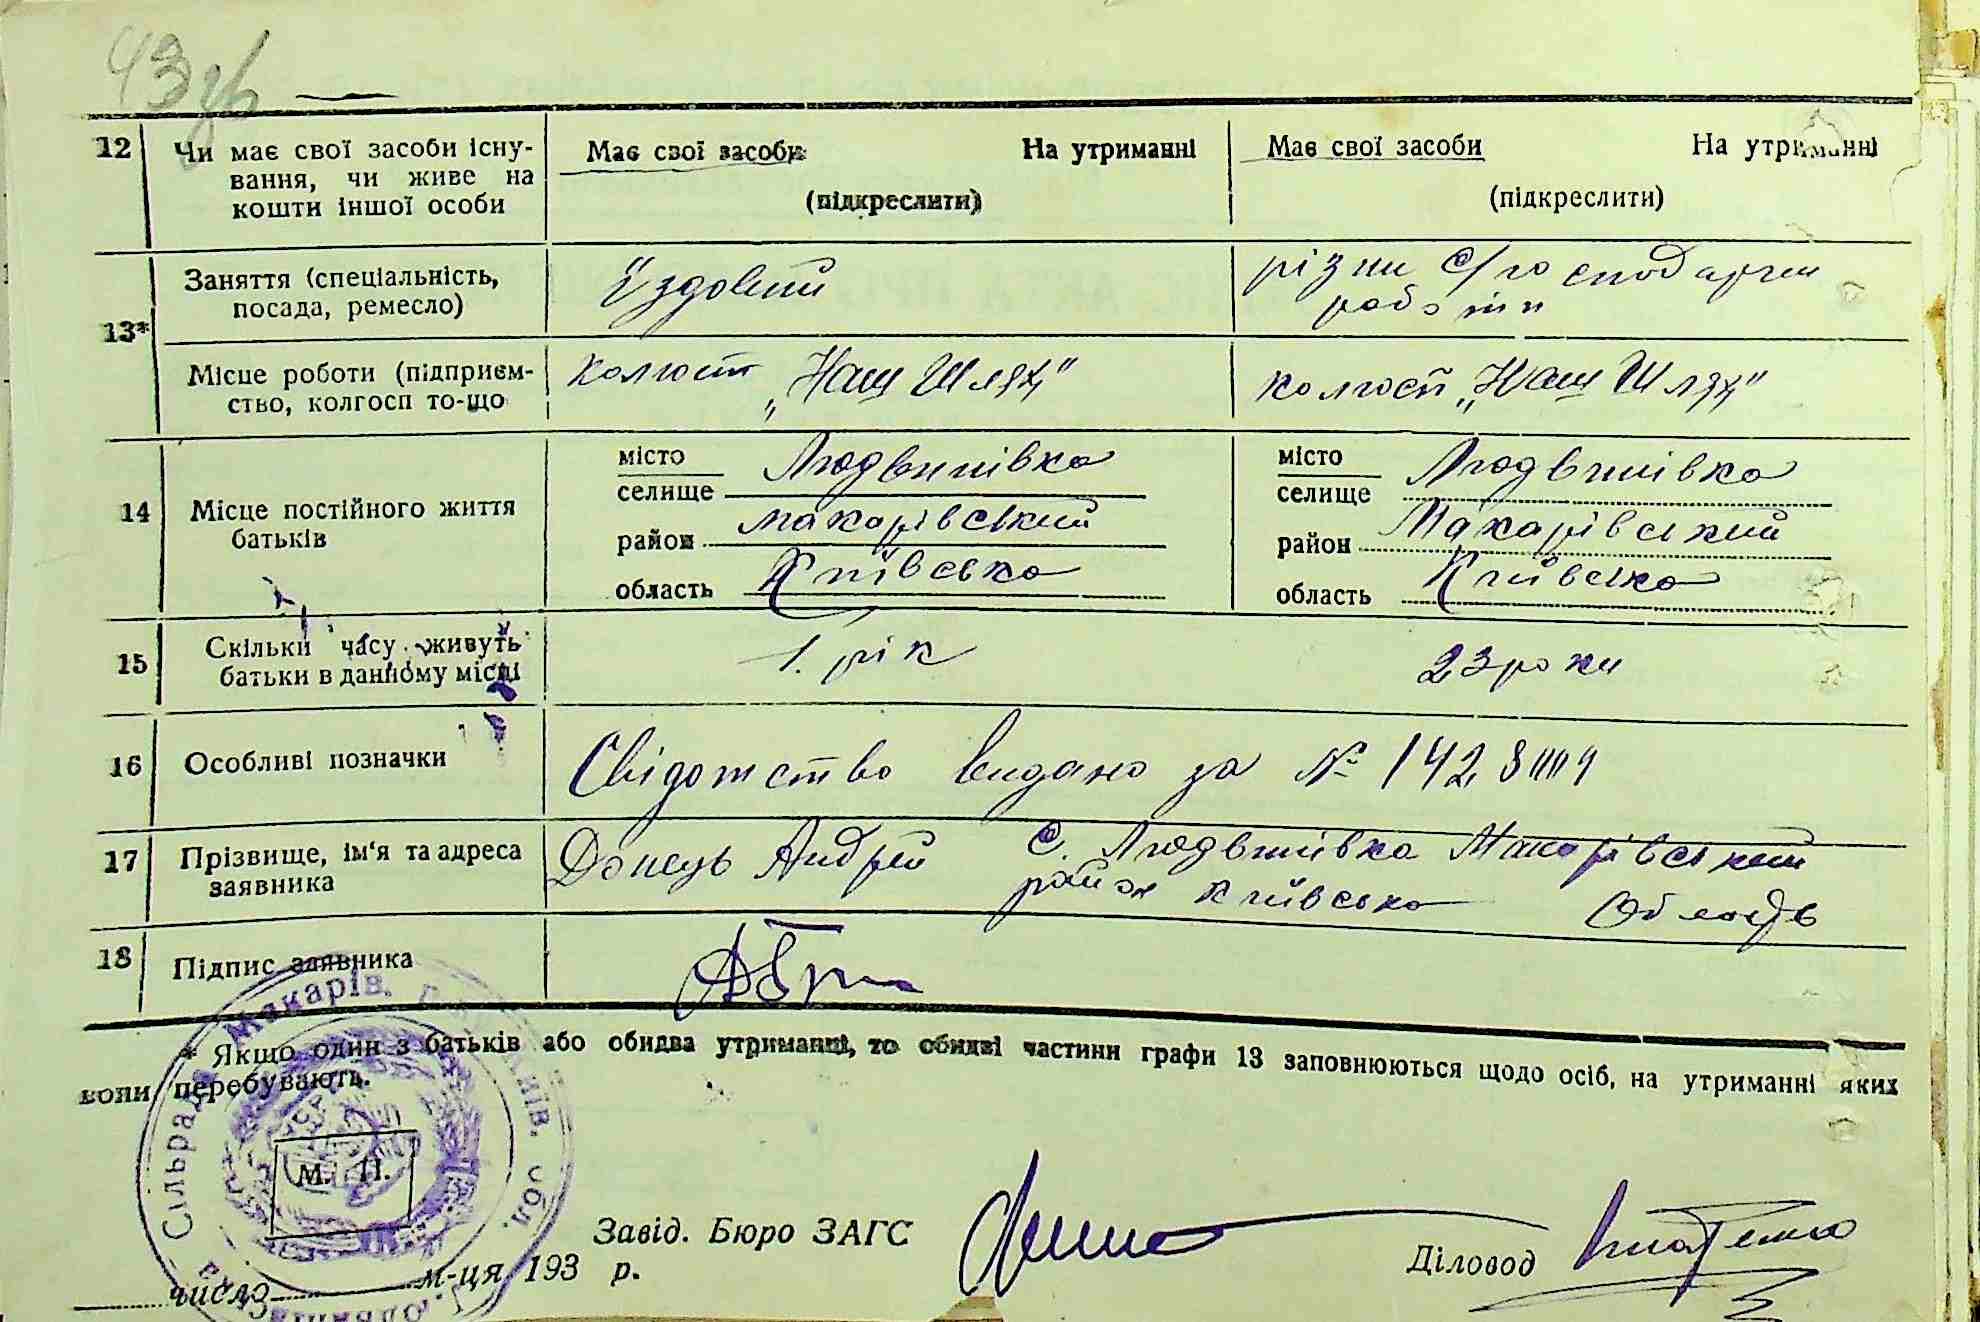 43зв
12 Чи має свої засоби існу- Має свої засоби На утриманні Має свої засоби На утриманні
вання, чи живе на
кошти іншої особи (підкреслити) (підкреслити)
13* Заняття (спеціальність, Їздовий різни с/господарчи
посада, ремесло) роботи
Місце роботи (підприєм- колгосп „Наш Шлях" колгосп „Наш Шлях"
ство, колгосп то-що
14 Місце постійного життя батьків
місто Людвинівка місто Людвинівка
селище селище
район Макарівський район Макарівський
область Київська область Київська
15 Скільки часу живуть 1. рік 23 роки
батьки в данному місці
16 Особливі позначки Свідотство видано за №
17 Прізвище, ім'я та адреса Донець Андрій С. Людвинівка Макарівський
заявника район Київська Область
18 Підпис заявника
* Якщо один з батьків або обидва утриманці, то обидві частини графи 13 заповнюються щодо осіб, на утриманні яких
вони перебувають.
Сільрада Макарів. Київ. обл.
М. П.
Завід. Бюро ЗАГС Діловод
число м-ця 193 р.